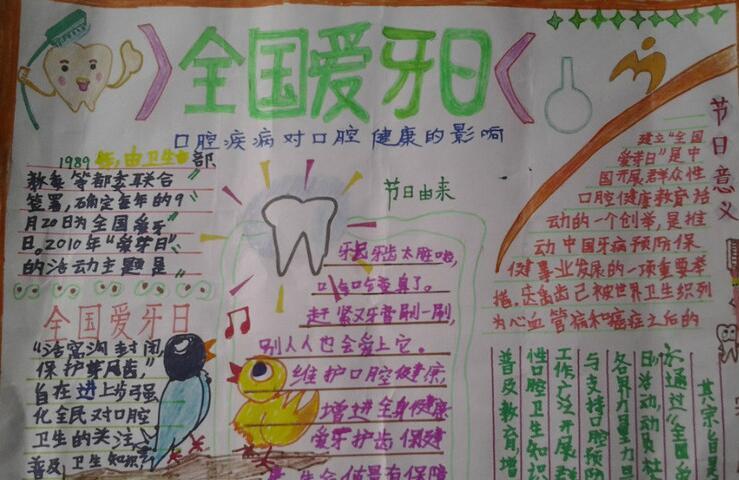 全国爱牙日
口腔疾病对口腔健康的影响
1989年,由卫生部
教委等部委联合
签署,确定每年的9
月20日为全国爱牙
日。2010年“爱牙日”
的活动主题是
全国爱牙日
“活窝沟封闭,
保护
自在进上步强
化全民对口腔
卫生的关注
普及卫生知识,
节日由来
牙齿牙齿太脏啦,
口气口气变臭了。
赶紧又牙膏刷一刷,
别人人也会爱上它。
维护口腔健康,
增进全身健康
爱牙护齿保健
节日意义
建立“全国
爱牙日”是中
国开展群众性
口腔健康教育活
动的一个创举,是推
动中国牙病预防保
健事业发展的一项重要举
措。龋齿已被世界卫生织列
为心血管病和癌症之后的
其宗旨是
通过“全国爱
日活动,动员社
各界力量
与支持口腔预防
工作广泛开展群
性口腔卫生知识
普及教育,增